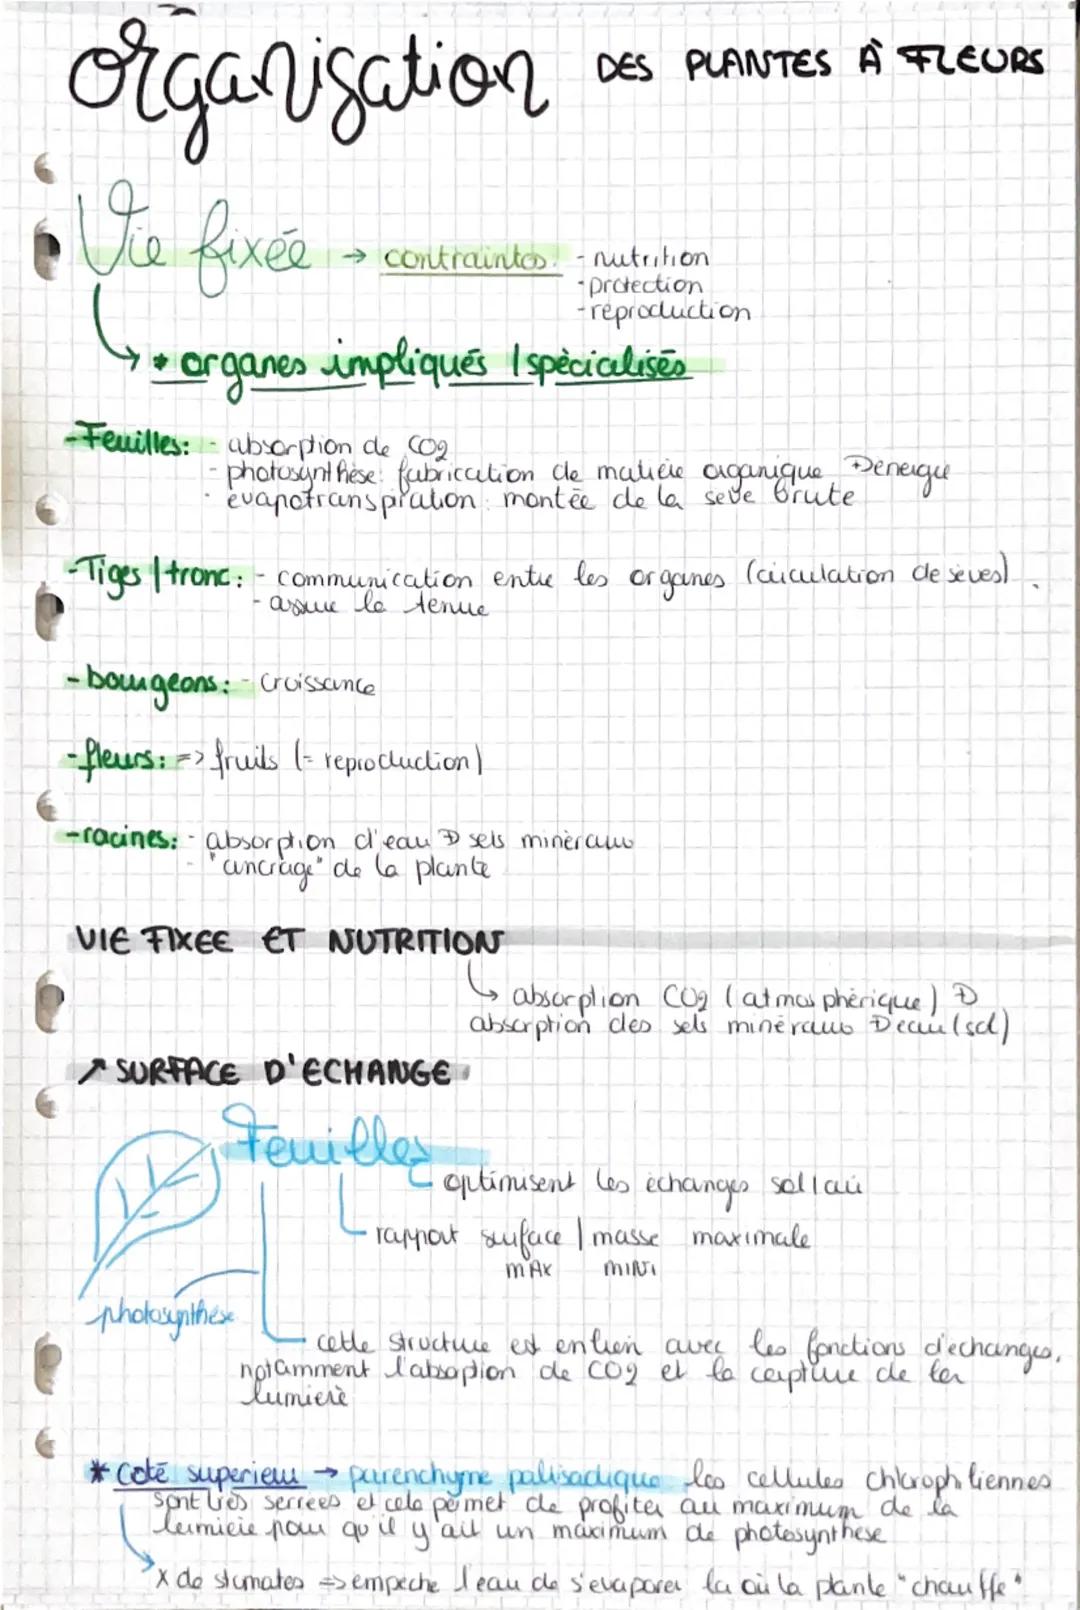 organisation DES PLANTES À FLEURS
Vie fixée → contraintes: - nutrition
- protection
- reproduction
* organes impliqués / spécialisés
- Feuilles: - absorption de CO2
- photosynthèse: fabrication de matière organique D énergie
- évapotranspiration: montée de la sève brute
- Tiges / tronc: - communication entre les organes (circulation de sèves)
- assure la tenue
- bourgeons: - Croissance
- fleurs: => fruits (= reproduction)
- racines: - absorption d'eau D sels minéraux
- "ancrage" de la plante
VIE FIXEE ET NUTRITION
→ absorption CO2 (atmosphérique) D
absorption des sels minéraux D eau (sol)
↗ SURFACE D'ECHANGE
Feuilles
optimisent les échanges sol/air
rapport surface / masse maximale
MAX MINI
photosynthèse
cette structure est en lien avec les fonctions d'échanges,
notamment l'absoption de CO2 et la capture de la
lumière
* Coté superieur → parenchyme palissadique les cellules chlorophiliennes
sont très serrées et cela permet de profiter au maximum de la
lumière pour qu'il y'ait un maximum de photosynthèse
X de stomates => empeche l'eau de s'evaporer la où la plante "chauffe"